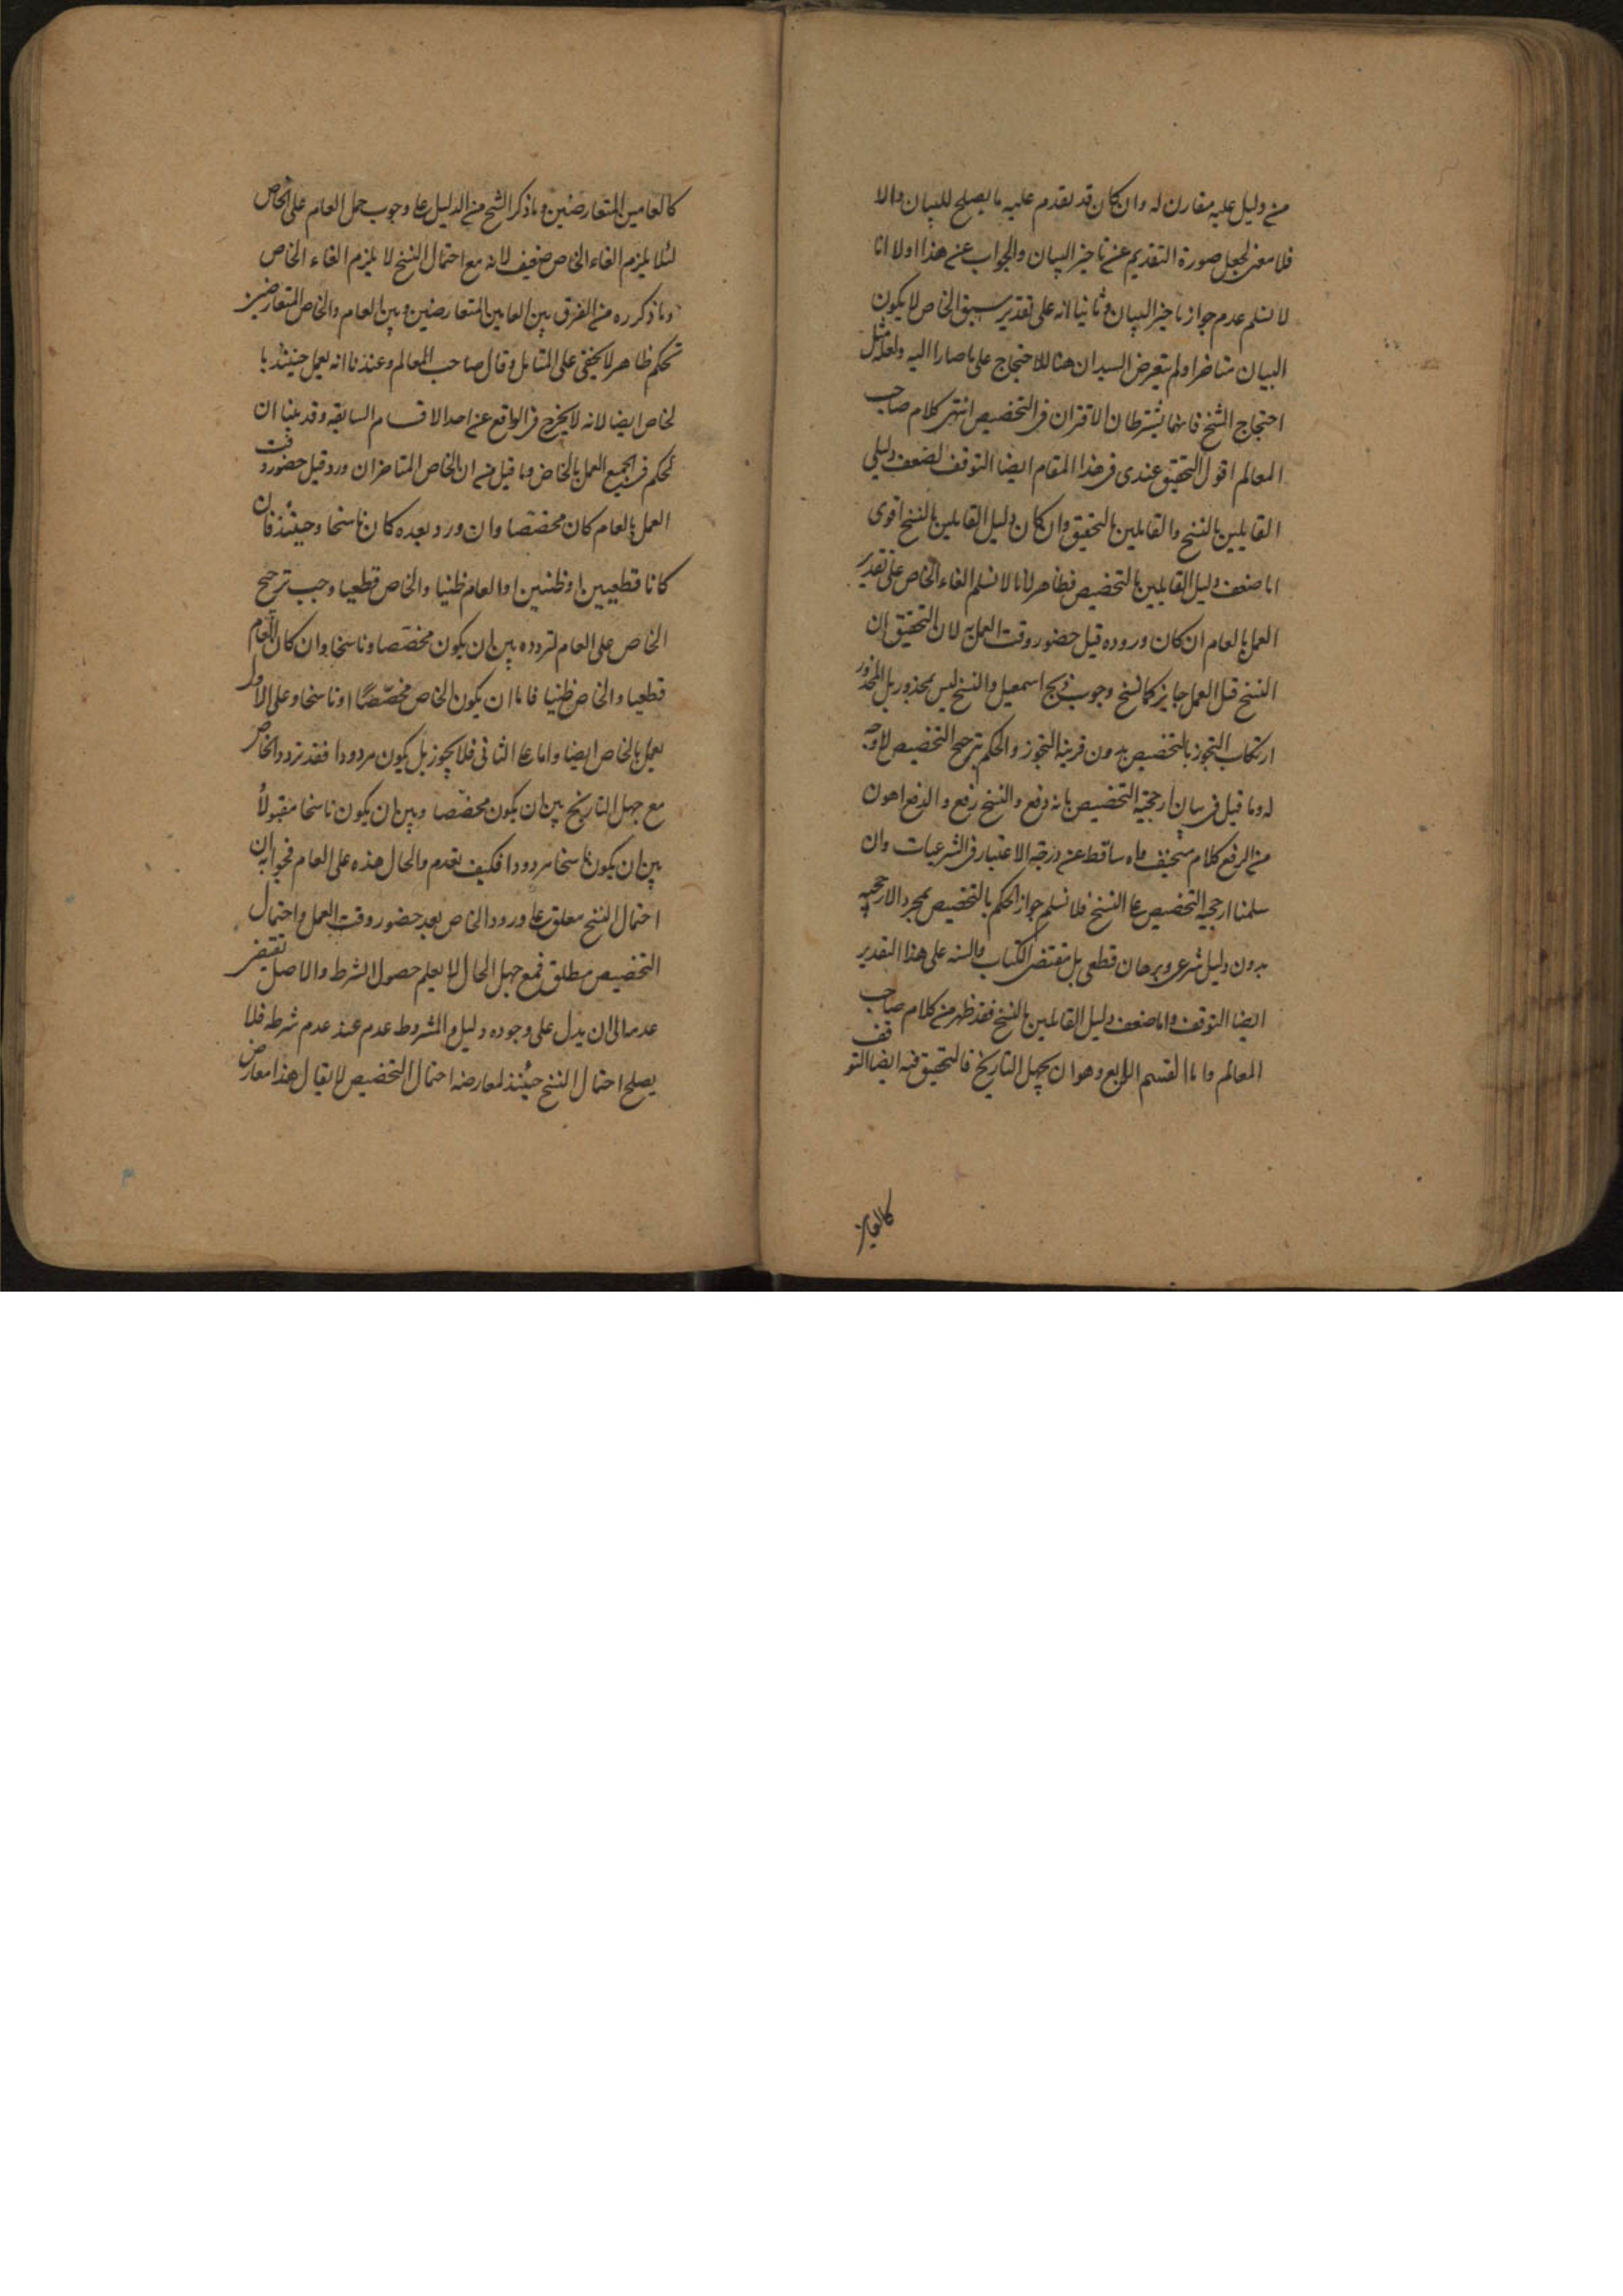 من دليل عليه مقارن له وان كان قد تقدم عليه ما يصلح للبيان والا
فلا معنى لجعل صورة التقديم عن تاخير البيان والجواب عن هذا اولا انا
لا نسلم عدم جواز تاخير البيان وثانيا انه على تقدير سبق الخاص لا يكون
البيان متاخرا ولم يتعرض السيدان هنا للاحتجاج على ما صارا اليه ولعله مثل
احتجاج الشيخ فانهما يشترطان الاقتران فى التخصيص انتهى كلام صاحب
المعالم اقول التحقيق عندى فى هذا المقام ايضا التوقف لضعف دليلى
القايلين بالنسخ والقايلين بالتخصيص وان كان دليل القايلين بالنسخ اقوى
اما ضعف دليل القايلين بالتخصيص فظاهر لانا لا نسلم الغاء الخاص على تقدير
العمل بالعام ان كان وروده قبل حضور وقت العمل به لان التحقيق ان
النسخ قبل العمل جايز كما نسخ وجوب ذبح اسمعيل والنسخ ليس بمحذور بل المحذور
ارتكاب التجوز بالتخصيص بدون قرينة التجوز والحكم بترجح التخصيص لا وجه
له وما قيل فى بيان ارجحية التخصيص بانه دفع والنسخ رفع والدفع اهون
من الرفع كلام سخيف واه ساقط عن درجة الاعتبار فى الشرعيات وان
سلمنا ارجحية التخصيص على النسخ فلا نسلم جواز الحكم بالتخصيص بمجرد الارجحية
بدون دليل شرعى وبرهان قطعى بل مقتضى الكتاب والسنه على هذا التقدير
ايضا التوقف واما ضعف دليل القائلين بالنسخ فقد ظهر من كلام صاحب
المعالم واما القسم الرابع وهو ان يجهل التاريخ فالتحقيق فيه ايضا التوقف
كالعامين
كالعامين المتعارضين وما ذكر الشيخ من الدليل على وجوب حمل العام على الخاص
لئلا يلزم الغاء الخاص ضعيف لانه مع احتمال النسخ لا يلزم الغاء الخاص
وما ذكره من الفرق بين العامين المتعارضين وبين العام والخاص المتعارضين
تحكم ظاهر لا يخفى على المتامل وقال صاحب المعالم وعندنا انه يعمل حينئذ با
لخاص ايضا لانه لا يخرج فى الواقع عن احد الاقسام السابقه وقد بينا ان
الحكم فى الجميع العمل بالخاص وما قيل من ان الخاص المتاخر ان ورد قبل حضور وقت
العمل بالعام كان مخصصا وان ورد بعده كان ناسخا وحينئذ فان
كانا قطعيين او ظنيين او العام ظنيا والخاص قطعيا وجب ترجح
الخاص على العام لتردده بين ان يكون مخصصا وناسخا وان كان العام
قطعيا والخاص ظنيا فاما ان يكون الخاص مخصّصًا او ناسخا وعلى الاول
يعمل بالخاص ايضا واما على الثانى فلا يجوز بل يكون مردودا فقد تردد الخاص
مع جهل التاريخ بين ان يكون مخصصا وبين ان يكون ناسخا مقبولاً
بين ان يكون ناسخا مردودا فكيف تقدم والحال هذه على العام فجوابه ان
احتمال النسخ معلق على ورود الخاص بعد حضور وقت العمل واحتمال
التخصيص مطلق فمع جهل الحال لا يعلم حصول الشرط والاصل يقتضى
عدمه الى ان يدل على وجوده دليل والمشروط عدم عند عدم شرطه فلا
يصلح احتمال النسخ حينئذ لمعارضه احتمال التخصيص لا يقال هذا معارض